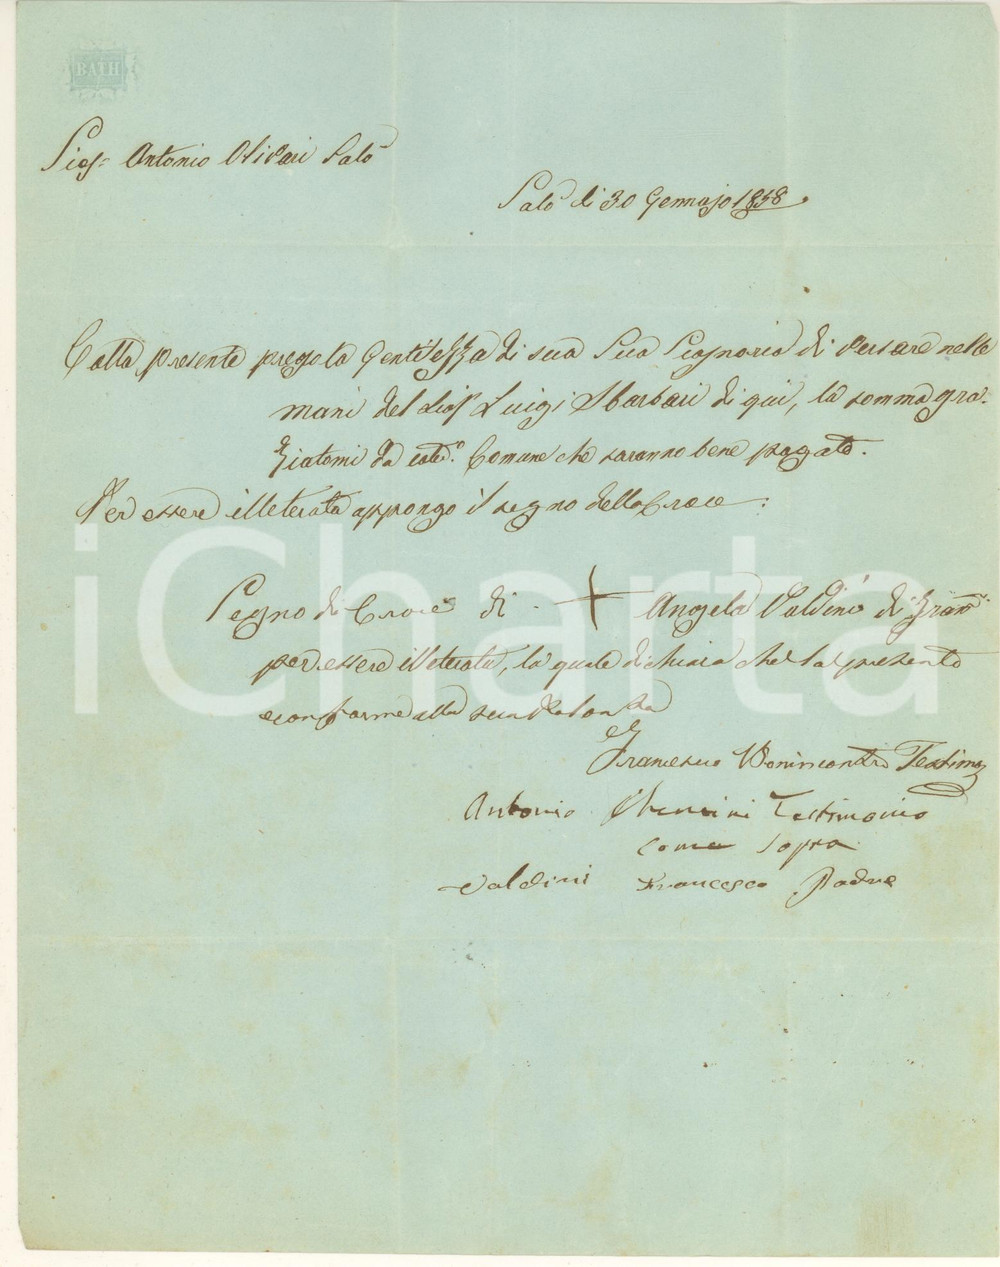 BATH
Sigr. Antonio Olivari Salò
Salò di 30 Gennajo 1858.
Colla presente prego la Gentilezza di sua Sua Signoria di versare nelle
mani del Sigr Luigi Sbarbari di qui, la somma gra-
ziatomi da cotes.o Comune che saranno bene pagato.
Per essere illeterata appongo il segno della Croce:
Segno di Croce di + Angela Valdini di Fran.
per essere illeterata, la quale dichiara che la presente
è conforme alla sua
Francesco Bonincontri Testimo
Antonio Testimonio
come sopra
Valdini Francesco Padre
iCharta